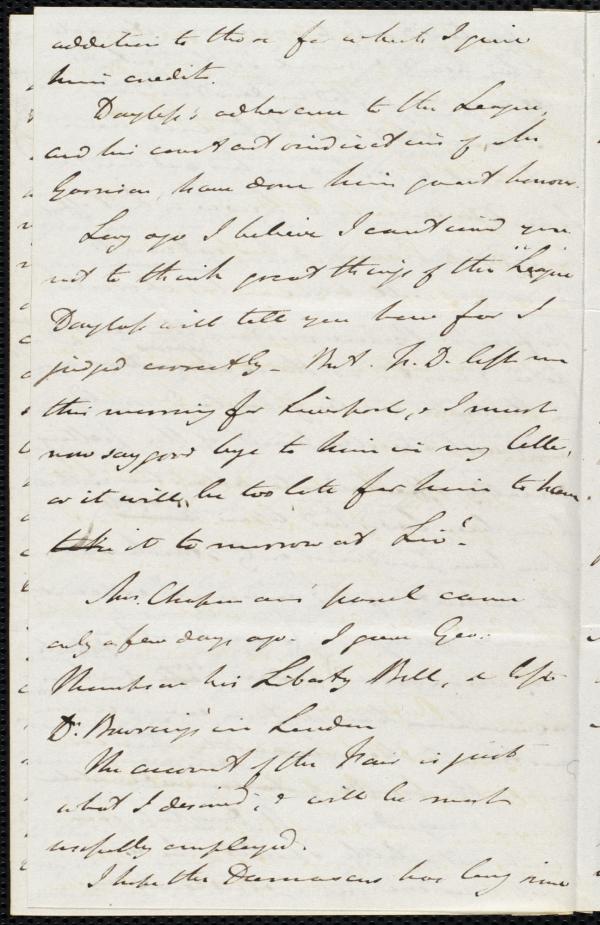 addition to those for which I give
him credit.
Douglass's adherence to the League,
and his constant vindications of Mr
Garrison, have done him great honour.
Long ago I believe I cautioned you
not to think great things of the "League"
Douglass will tell you how far I
judged correctly - But. F. D. left me
this morning for Liverpool, & I must
now say good bye to him in my letter,
or it will, be too late for him to have
take it to morrow at Liv'l.
Mrs. Chapman's parcel came
only a few days ago. I gave Geo:
Thompson his Liberty Bell, & left
Dr. Bowring's in London
The account of the Fair is just
what I desired, & will be most
usefully employed.
I hope the Damascus has long since